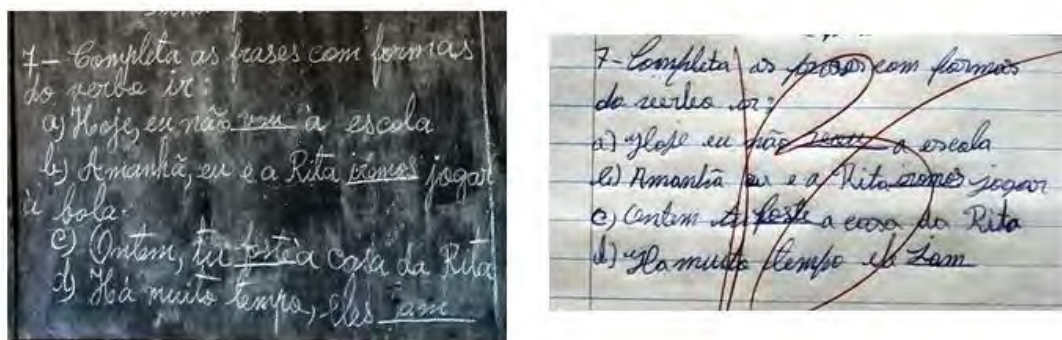 7 - Completa as frases com formas
do verbo ir:
a) Hoje, eu não vou à escola
b) Amanhã, eu e a Rita iremos jogar
à bola.
c) Ontem, tu foste à casa da Rita
d) Há muito tempo, eles iam
7 - Completa as com formas
do verbo ir:
a) Hoje eu não a escola
b) Amanhã eu e a Rita iremos jogar
c) Ontem tu foste a casa da Rita
d) Ha muito tempo iam